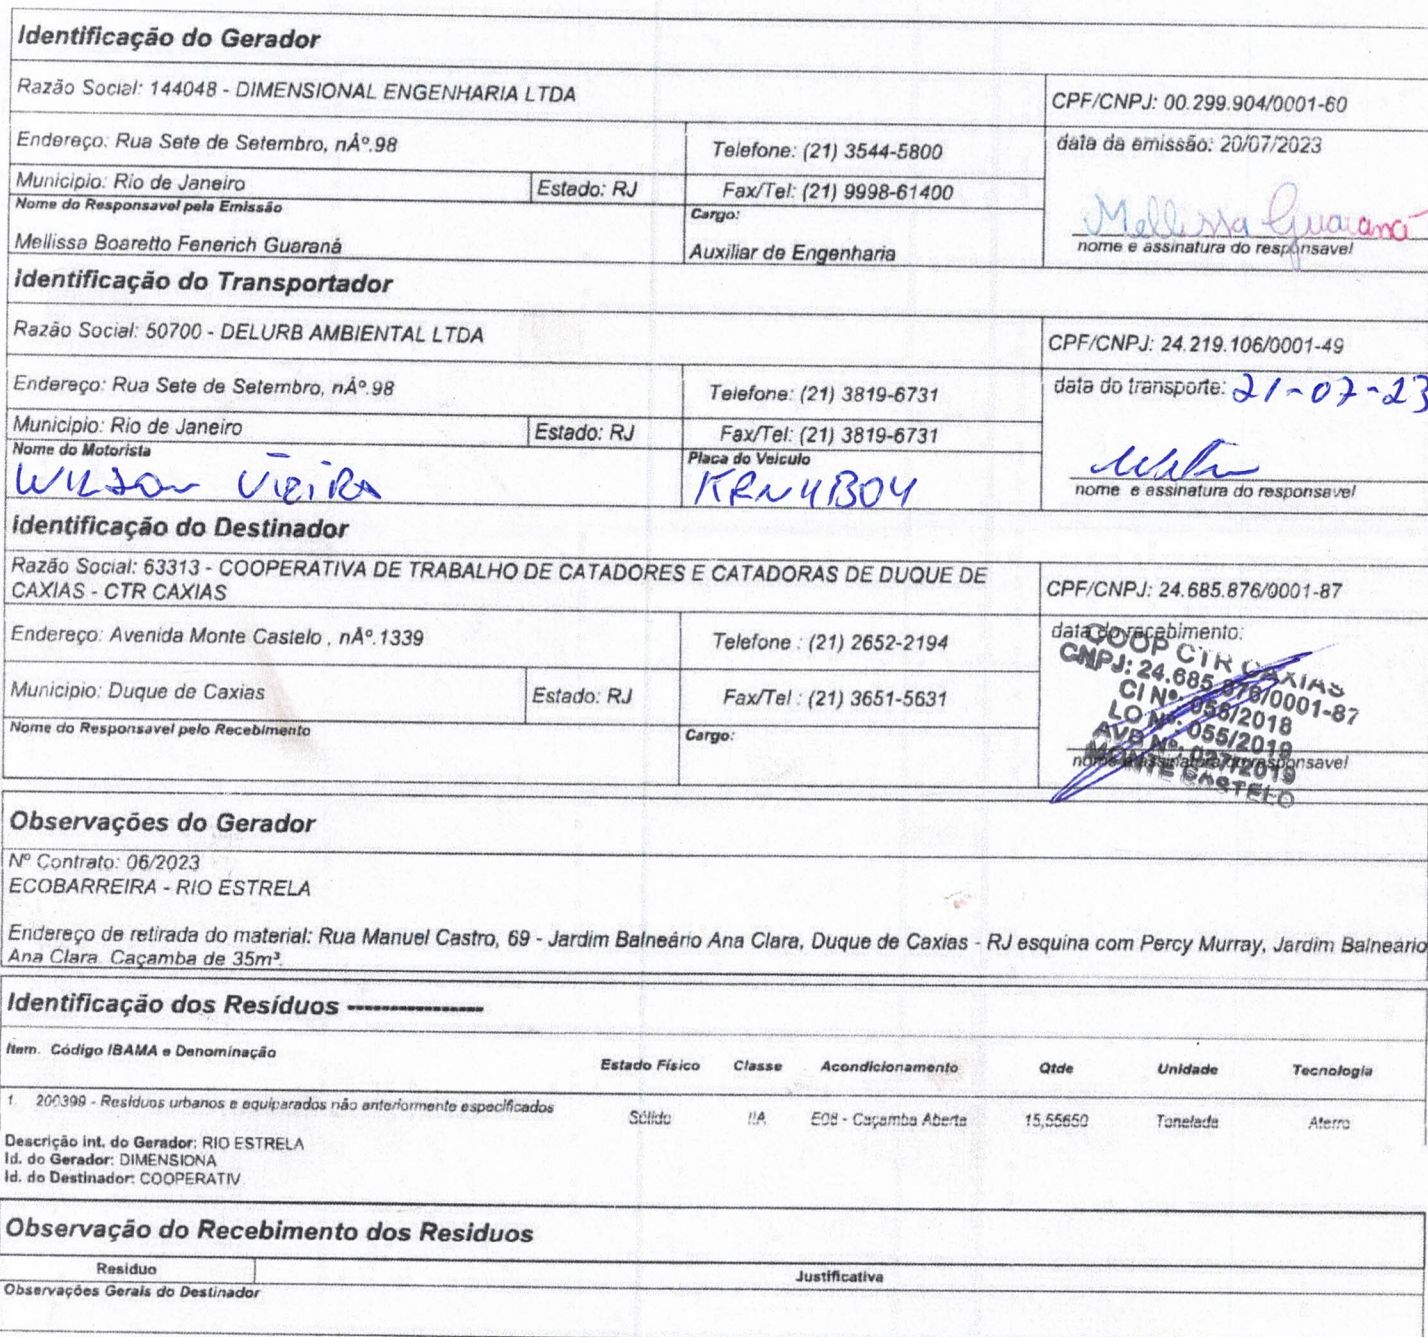 Identificação do Gerador
Razão Social: 144048 - DIMENSIONAL ENGENHARIA LTDA
CPF/CNPJ: 00.299.904/0001-60
Endereço: Rua Sete de Setembro, nÂº.98
Telefone: (21) 3544-5800
data da emissão: 20/07/2023
Municipio: Rio de Janeiro
Estado: RJ
Fax/Tel: (21) 9998-61400
Nome do Responsavel pela Emissão
Cargo:
Mellissa Guaraná
Mellissa Boaretto Fenerich Guaraná
Auxiliar de Engenharia
nome e assinatura do responsavel
Identificação do Transportador
Razão Social: 50700 - DELURB AMBIENTAL LTDA
CPF/CNPJ: 24.219.106/0001-49
Endereço: Rua Sete de Setembro, nÂº.98
Telefone: (21) 3819-6731
data do transporte: 21-07-23
Municipio: Rio de Janeiro
Estado: RJ
Fax/Tel: (21) 3819-6731
Nome do Motorista
Placa do Veiculo
Wilson Vieira
KRN4B04
nome e assinatura do responsavel
Identificação do Destinador
Razão Social: 63313 - COOPERATIVA DE TRABALHO DE CATADORES E CATADORAS DE DUQUE DE
CAXIAS - CTR CAXIAS
CPF/CNPJ: 24.685.876/0001-87
Endereço: Avenida Monte Castelo , nÂº.1339
Telefone : (21) 2652-2194
data do recebimento:
COOP CTR CAXIAS
CNPJ: 24.685.876/0001-87
CI Nº. 056/2018
LO Nº. 055/2019
AVB Nº. 027/2019
MONTE CASTELO
Municipio: Duque de Caxias
Estado: RJ
Fax/Tel : (21) 3651-5631
Nome do Responsavel pelo Recebimento
Cargo:
nome e assinatura do responsavel
Observações do Gerador
Nº Contrato: 06/2023
ECOBARREIRA - RIO ESTRELA
Endereço de retirada do material: Rua Manuel Castro, 69 - Jardim Balneário Ana Clara, Duque de Caxias - RJ esquina com Percy Murray, Jardim Balneário
Ana Clara. Caçamba de 35m³.
Identificação dos Resíduos ----------------
Item. Código IBAMA e Denominação
Estado Físico
Classe
Acondicionamento
Qtde
Unidade
Tecnologia
1. 200399 - Resíduos urbanos e equiparados não anteriormente especificados
Sólido
IIA
E08 - Caçamba Aberta
15,55650
Tonelada
Aterro
Descrição int. do Gerador: RIO ESTRELA
Id. do Gerador: DIMENSIONA
Id. do Destinador: COOPERATIV
Observação do Recebimento dos Residuos
Residuo
Justificativa
Observações Gerais do Destinador